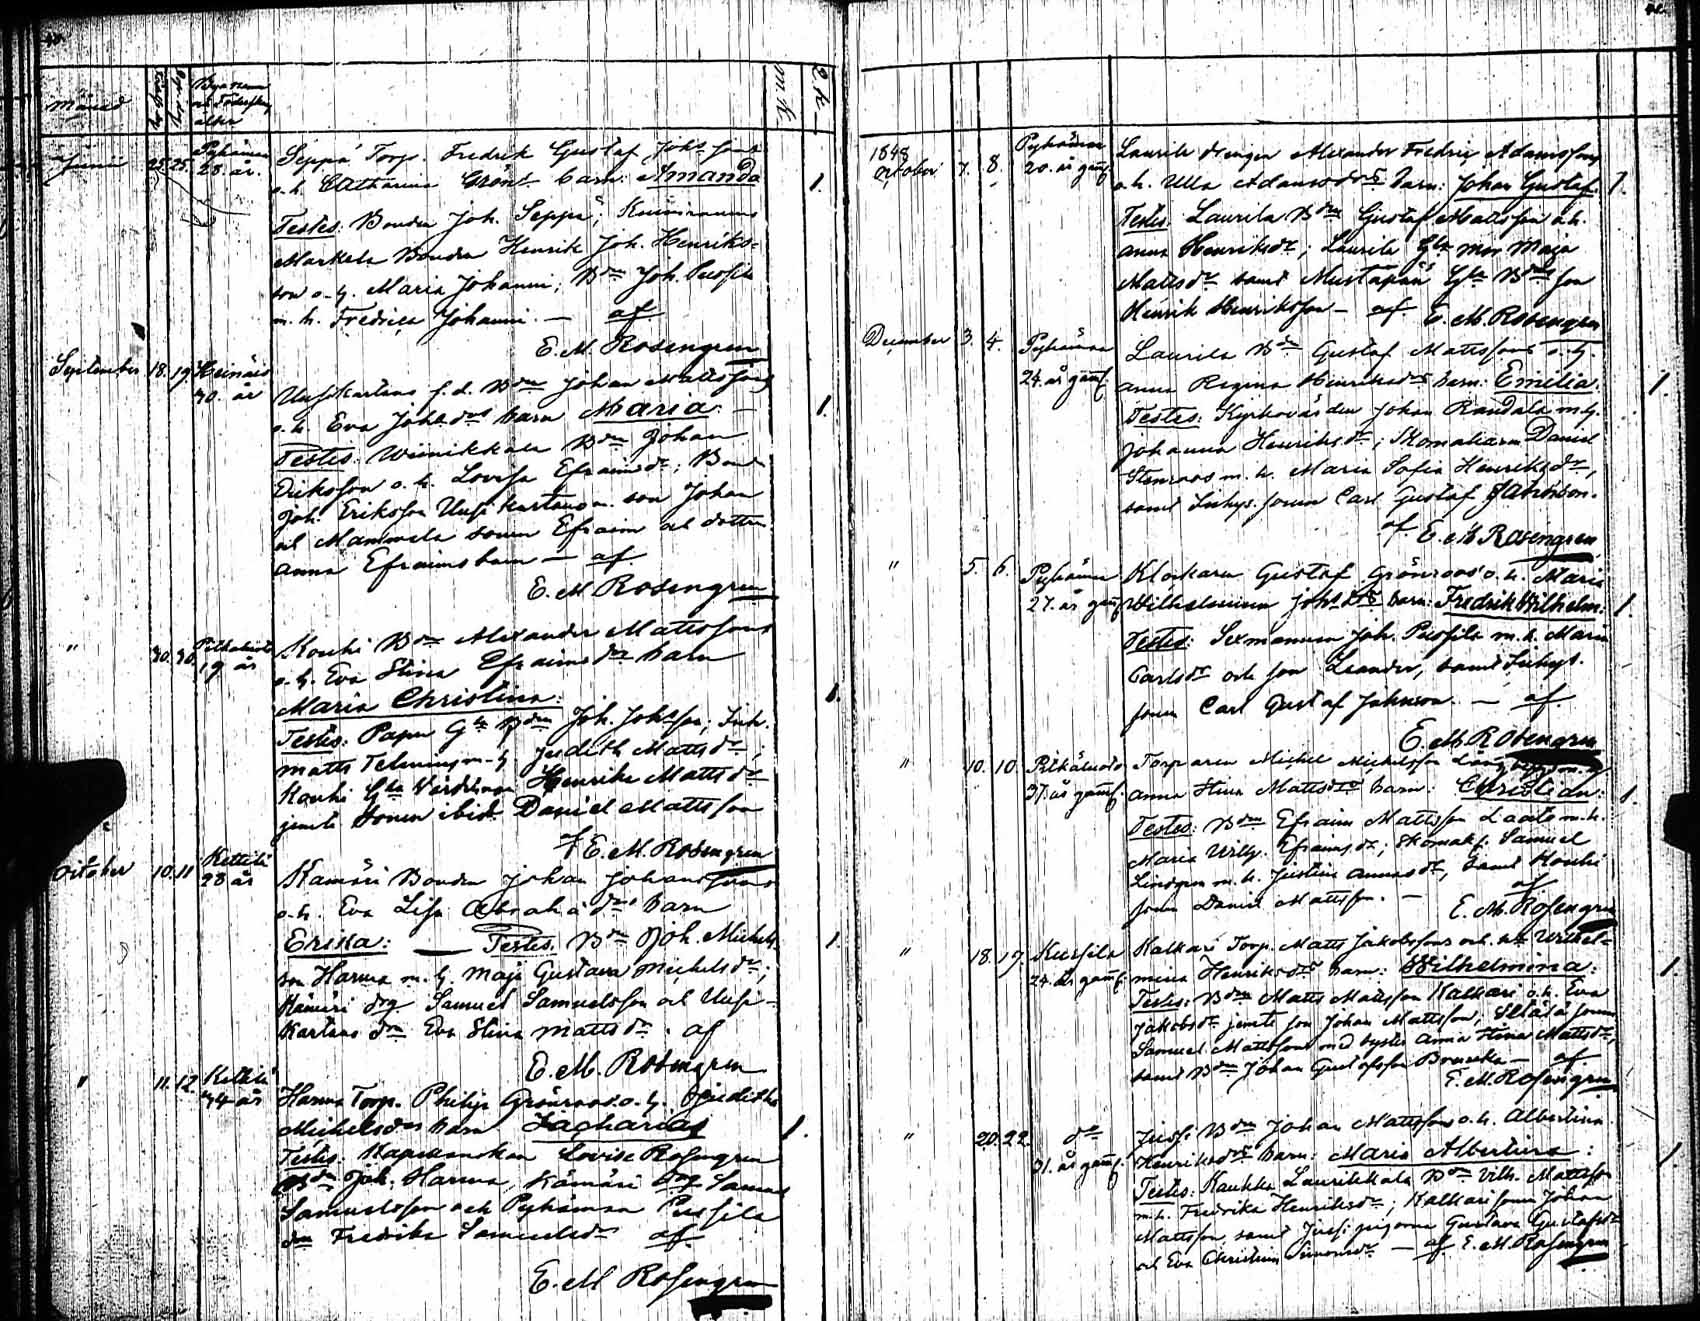 Månad
M. K.
Q. K.
Juni 25. 25. Pyhämaa 28. år. Seppä Torp. Fredrik Gustaf Johs Sons
o. h. Catharina Grönr barn: Amanda 1.
Testes: Bonden Joh. Seppä;
Markula Bonden Henrik Joh. Henriks-
son o. h. Maria Johanni; Bdn Joh. Puosila
m. h. Fredrica Johanni. — af
E. M. Rosengren
September 18. 19. Heinäis 40. år f. d. Bdn Johan Mattssons
o. h. Eva Johsdrs barn Maria. — 1.
Testes: Weinikkala Bdn Johan
Eriksson o. h. Lovisa Efraimsdr; Bond
Joh. Eriksson son Johan
och sonen Efraim och dottren
Anna Efraimsbarn — af
E. M. Rosengren
" 30. 30. 19 år Kouhi Bdn Alexander Mattssons
o. h. Eva Stina Efraimsdrs barn
Maria Christina. 1.
Testes: Papu Bdn Joh. Johsson; Inh.
Matts m. h. Judith Mattsdr;
Kouhi Henrika Mattsdr
jemte sonen ibid. Daniel Mattsson
af E. M. Rosengren
October 10. 11 Ketteli 28 år Kamäri Bonden Johan Johanssons
o. h. Eva Lisa Abrah. drs barn
Erika: — Testes: Bdn Joh. Michels- 1.
son Harma m. h. Maja Gustava Michelsdr;
Kämäri drg Samuel Samuelsson och Uusi-
Kartano Eva Stina Mattsdr. af
E. M. Rosengren
" 11. 12. Ketteli 44 år Harma Torp. Philip Grönroos o. h. Judith
Michelsdrs barn Zacharias 1.
Testes: Lovisa Rosengren
Bdn Joh. Harma, Kämäri drg Samuel
Samuelsson och Pyhämaa Puosila
Fredrika Samuelsdr af
E. M. Rosengren
1848 October 7. 8. Pyhämaa 20. år gaml. Laurila drengen Alexander Fredric Adamssons
o. h. Ulla Adamsdrs barn: Johan Gustaf. 1.
Testes: Laurila Bdn Gustaf Mattsson o. h.
Anna Henriksdr; Laurila Gla Mor Maja
Mattsdr samt Mustapää Gla Bdns son
Henrik Henriksson — af E. M. Rosengren
December 3. 4. Pyhämaa 24. år gaml. Laurila Bdn Gustaf Mattssons o. h.
Anna Regina Henriksdrs barn: Emelia. 1.
Testes: Kyrkovärden Johan Randala m. h.
Johanna Henriksdr; Skomakaren Daniel
Stenroos m. h. Maria Sofia Henriksdr,
samt Inhys. sonen Carl Gustaf
af E. M. Rosengren
" 5. 6. Pyhämaa 27. år gaml. Klockaren Gustaf Grönroos o. h. Maria
Wilhelmina Johsdrs barn: Fredrik Wilhelm. 1.
Testes: Sexmannen Joh. Puosila m. h. Maria
Carlsdr och son Leander, samt Inhys.
sonen Carl Gustaf Johnson. — af
E. M. Rosengren
" 10. 10. 37. år gaml. Torparen Michel Michelsson o. h.
Anna Stina Mattsdrs barn: Christian: 1.
Testes: Bdn Efraim Mattsson Laato m. h.
Maria Wilh. Efraimsdr; Skomak. Samuel
Lindgren m. h. Justina Annasdr, samt Kouhi
sonen Daniel Mattsson. — af
E. M. Rosengren
" 18. 19. Kukola 24. år gaml. Kalkari Torp. Matts Jakobssons och h. Wilhel-
mina Henriksdrs barn: Wilhelmina: 1.
Testes: Bdn Matts Mattsson Kalkari o. h. Eva
Jakobsdr jemte son Johan Mattsson; sonen
Samuel Mattsson med syster Anna Stina Mattsdr,
samt Bdn Johan Gustafsson — af
E. M. Rosengren
" 20. 22. do 31. år gaml. Jussi Bdn Johan Mattssons o. h. Albertina
Henriksdrs barn: Maria Albertina: 1
Testes: Kaukka Laurikkala Bdn Vilh. Mattsson
m. h. Fredrika Henriksdr; Kalkari sonen Johan
Mattsson, samt Jussi pigorna Gustava Gustafsdr
och Eva Christina Simonsdr — af E. M. Rosengren